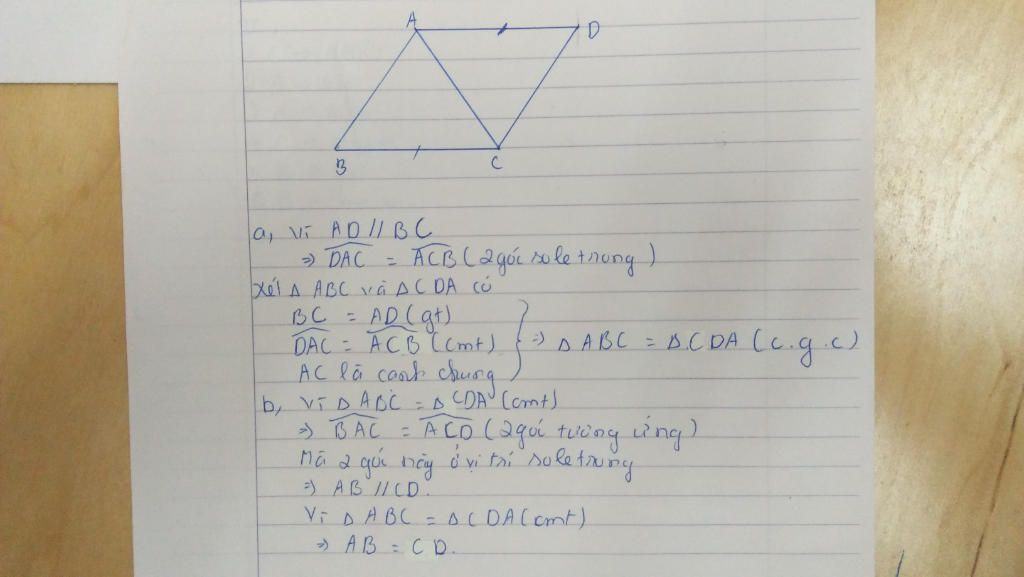 A
D
B
C
a, Vì AD // BC
⇒ DAC = ACB (2 góc sole trong)
Xét Δ ABC và Δ CDA có
BC = AD (gt)
DAC = ACB (cmt) ⇒ Δ ABC = Δ CDA (c.g.c)
AC là cạnh chung
b, Vì Δ ABC = Δ CDA (cmt)
⇒ BAC = ACD (2 góc tương ứng)
Mà 2 góc này ở vị trí sole trong
⇒ AB // CD.
Vì Δ ABC = Δ CDA (cmt)
⇒ AB = CD.